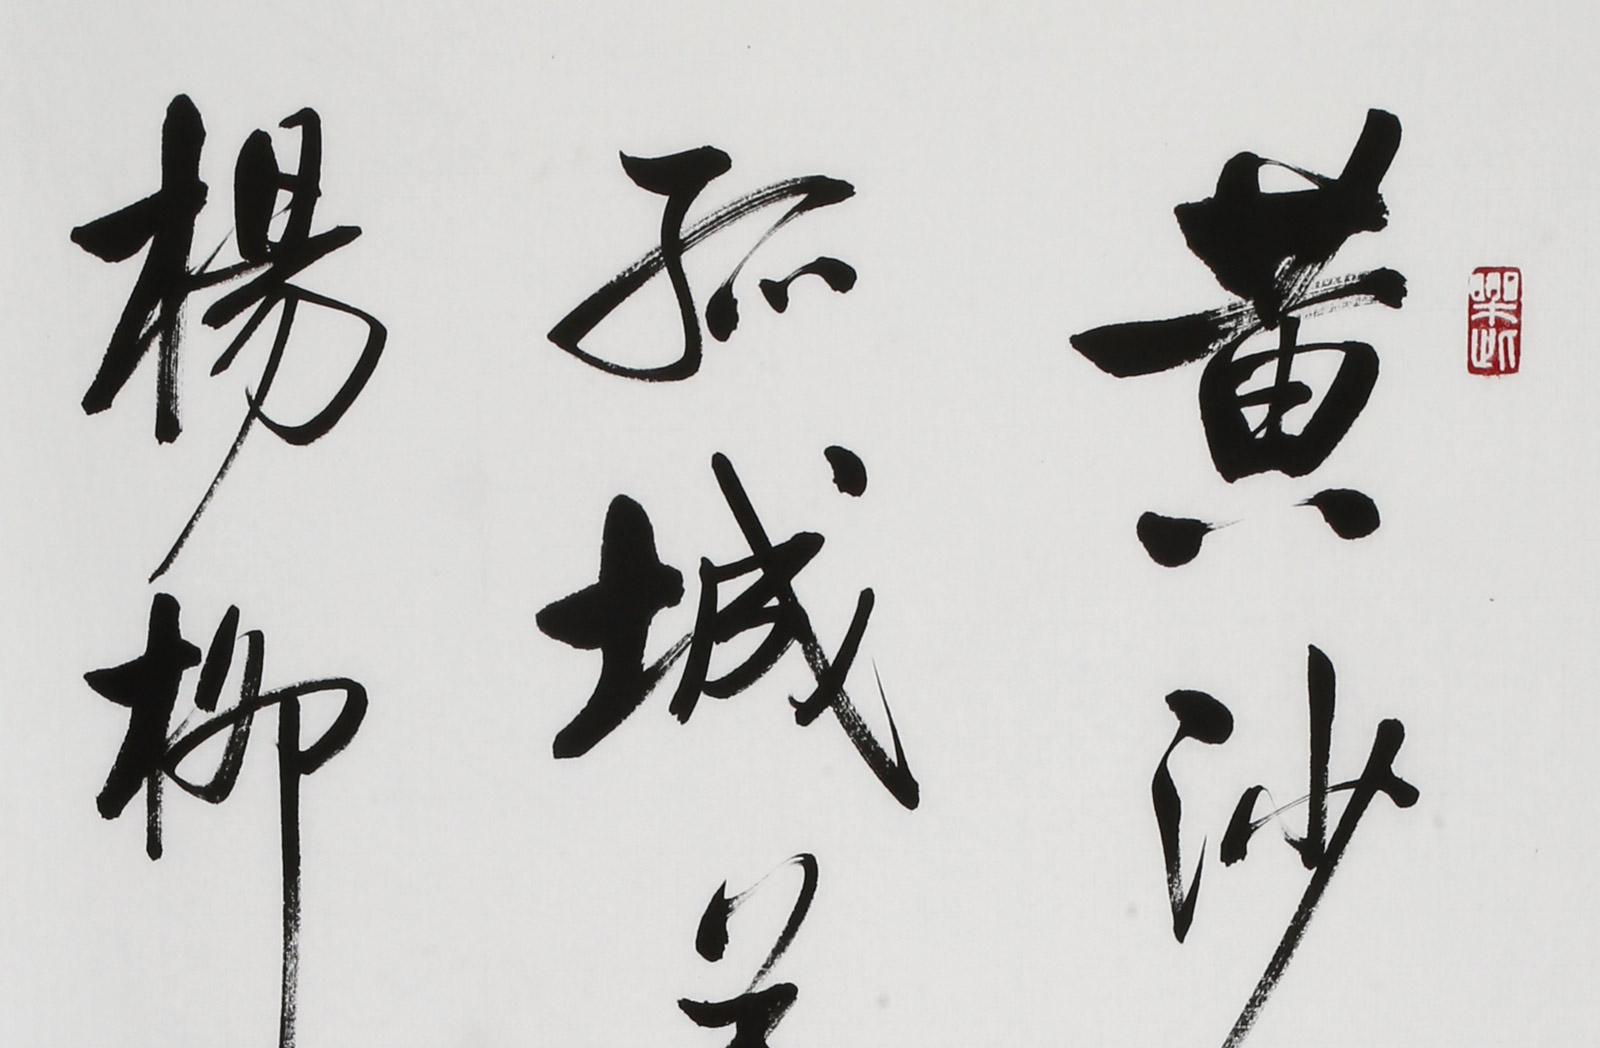 黄沙
孤城
楊柳